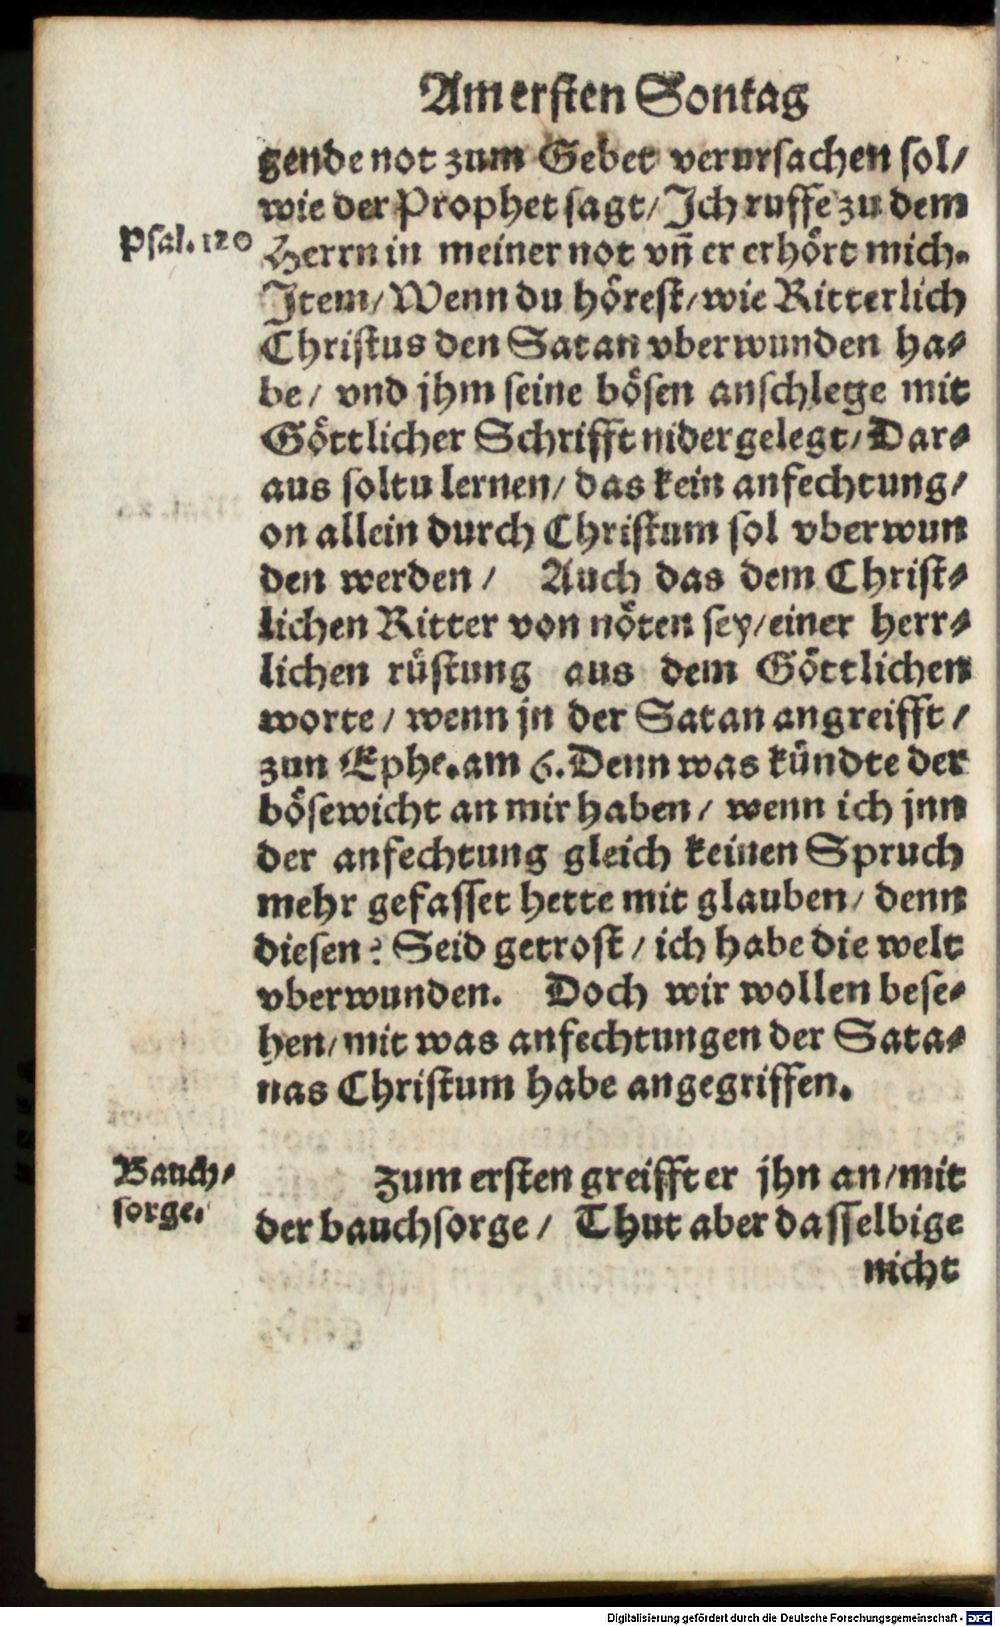 Am ersten Sontag
gende not zum Gebet verursachen sol/
wie der Prophet sagt/ Ich ruffe zu dem
Psal. 120 Herrn in meiner not vñ er erhört mich.
Item/ Wenn du hörest/ wie Ritterlich
Christus den Satan vberwunden ha-
be/ vnd jhm seine bösen anschlege mit
Göttlicher Schrifft nider gelegt/ Dar-
aus soltu lernen/ das kein anfechtung/
on allein durch Christum sol vberwun
den werden/ Auch das dem Christ-
lichen Ritter von nöten sey/ einer herr-
lichen rüstung aus dem Göttlichen
worte/ wenn jn der Satan angreifft/
zun Ephe. am 6. Denn was kündte der
bösewicht an mir haben/ wenn ich jnn
der anfechtung gleich keinen Spruch
mehr gefasset hette mit glauben/ denn
diesen: Seid getrost/ ich habe die welt
vberwunden. Doch wir wollen bese-
hen/ mit was anfechtungen der Sata-
nas Christum habe angegriffen.
Bauch-
sorge.
Zum ersten greifft er jhn an/ mit
der bauchsorge/ Thut aber dasselbige
nicht
Digitalisierung gefördert durch die Deutsche Forschungsgemeinschaft - DFG